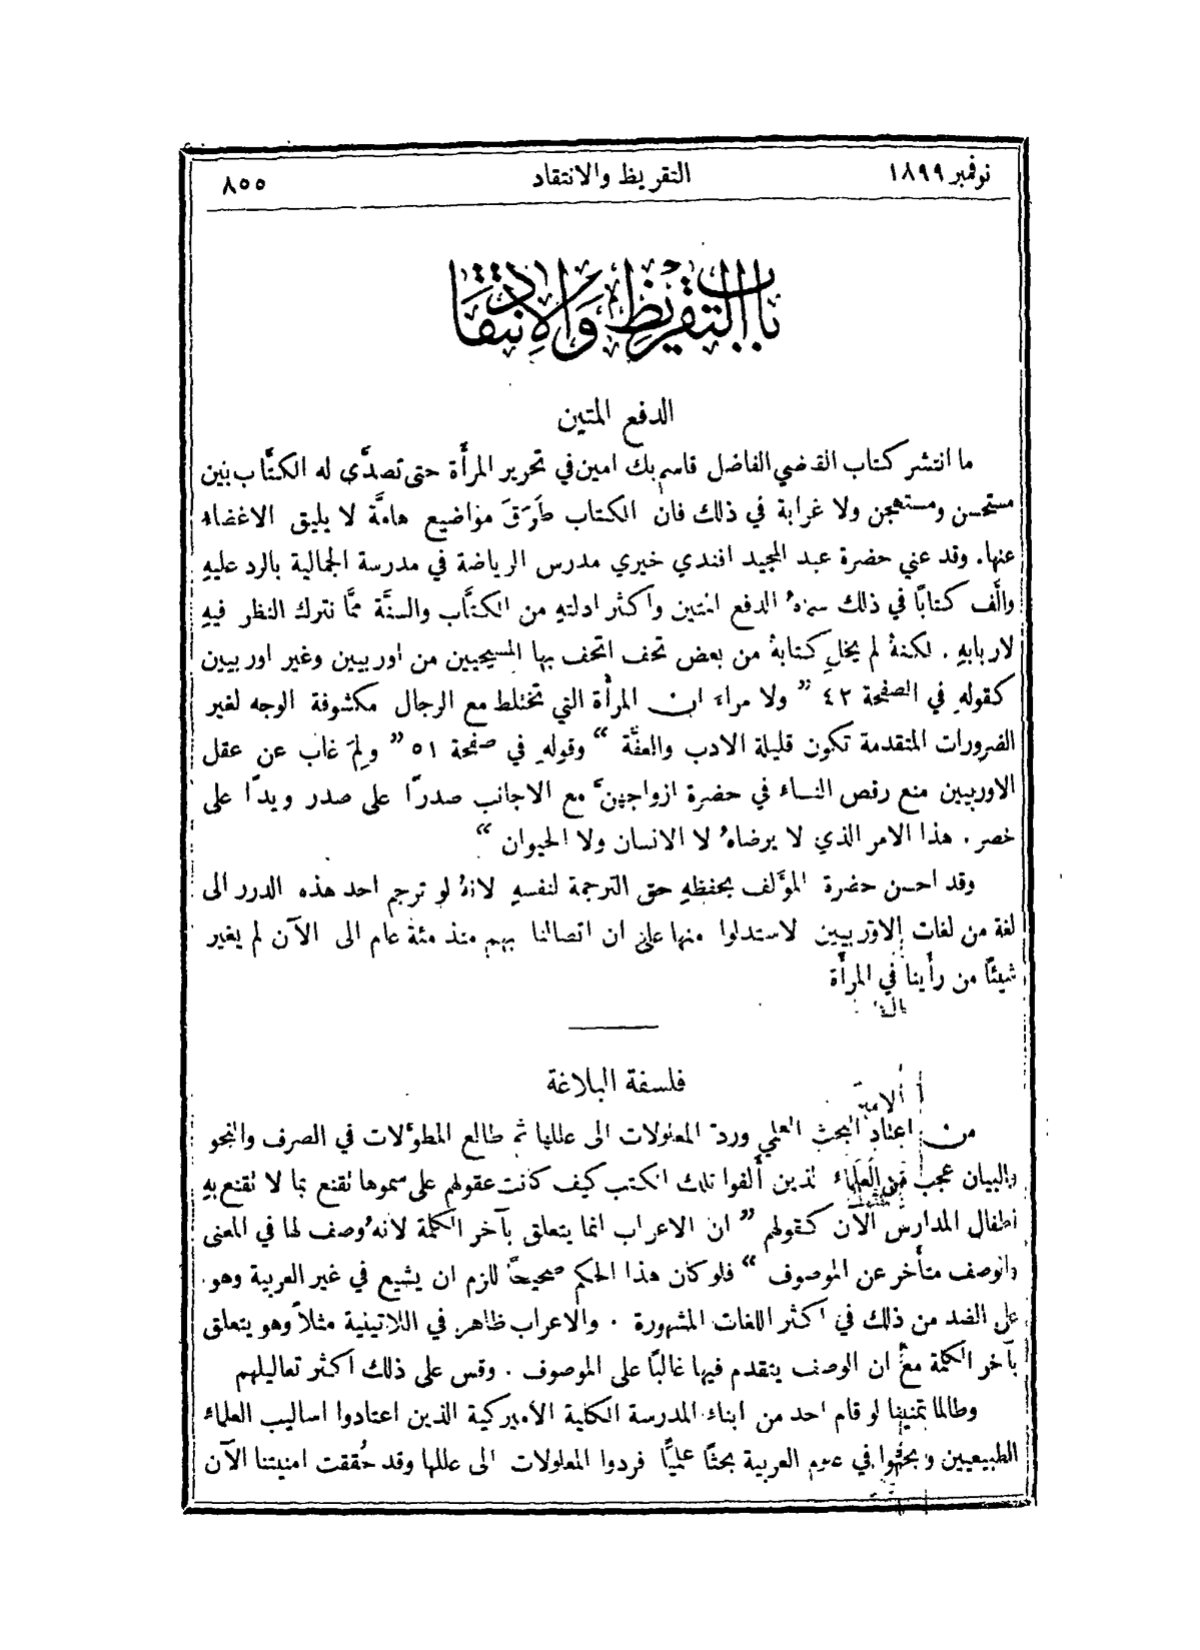 نوفمبر ١٨٩٩
التقريظ والانتقاد
٨٥٥
باب التقريظ والانتقاد
الدفع المتين
ما انتشر كتاب القاضي الفاضل قاسم بك امين في تحرير المرأة حتى تصدَّى له الكتَّاب بين
مستحسن ومستهجن ولا غرابة في ذلك فان الكتاب طَرَقَ مواضيع هامَّة لا يليق الاغضاء
عنها. وقد عني حضرة عبد المجيد افندي خيري مدرس الرياضة في مدرسة الجمالية بالرد عليهِ
والَّف كتابًا في ذلك سماهُ الدفع المتين واكثر ادلتهِ من الكتاب والسنَّة ممَّا نترك النظر فيهِ
لاربابهِ . لكنهُ لم يخلِ كتابهُ من بعض تحف اتحف بها المسيحيين من اوربيين وغير اوربيين
كقولهِ في الصفحة ٤٢ ” ولا مراء ان المرأة التي تختلط مع الرجال مكشوفة الوجه لغير
الضرورات المتقدمة تكون قليلة الادب والعفَّة “ وقولهِ في صفحة ٥١ ” ولِمَ غاب عن عقل
الاوربيين منع رقص النساء في حضرة ازواجهنَّ مع الاجانب صدرًا على صدر ويدًا على
خصر . هذا الامر الذي لا يرضاهُ لا الانسان ولا الحيوان “
وقد احسن حضرة المؤلف بحفظهِ حق الترجمة لنفسهِ لانهُ لو ترجم احد هذه الدرر الى
لغة من لغات الاوربيين لاستدلوا منها على ان اتصالنا بهم منذ مئة عام الى الآن لم يغير
شيئًا من رأينا في المرأة
فلسفة البلاغة
من اعتاد البحث العلمي ورد المعلولات الى عللها ثم طالع المطوَّلات في الصرف والنحو
والبيان عجب من العلماء الذين ألفوا تلك الكتب كيف كانت عقولهم على سموها تقنع بما لا تقنع بهِ
اطفال المدارس الآن كقولهم ” ان الاعراب انما يتعلق بآخر الكلمة لانهُ وصف لها في المعنى
والوصف متأخر عن الموصوف “ فلو كان هذا الحكم صحيحًا للزم ان يشيع في غير العربية وهو
على الضد من ذلك في اكثر اللغات المشهورة . والاعراب ظاهر في اللاتينية مثلاً وهو يتعلق
بآخر الكلمة مع ان الوصف يتقدم فيها غالبًا على الموصوف . وقس على ذلك اكثر تعاليلهم
وطالما تمنينا لو قام احد من ابناء المدرسة الكلية الاميركية الذين اعتادوا اساليب العلماء
الطبيعيين وبحثوا في علوم العربية بحثًا علميًّا فردوا المعلولات الى عللها وقد حُققت امنيتنا الآن